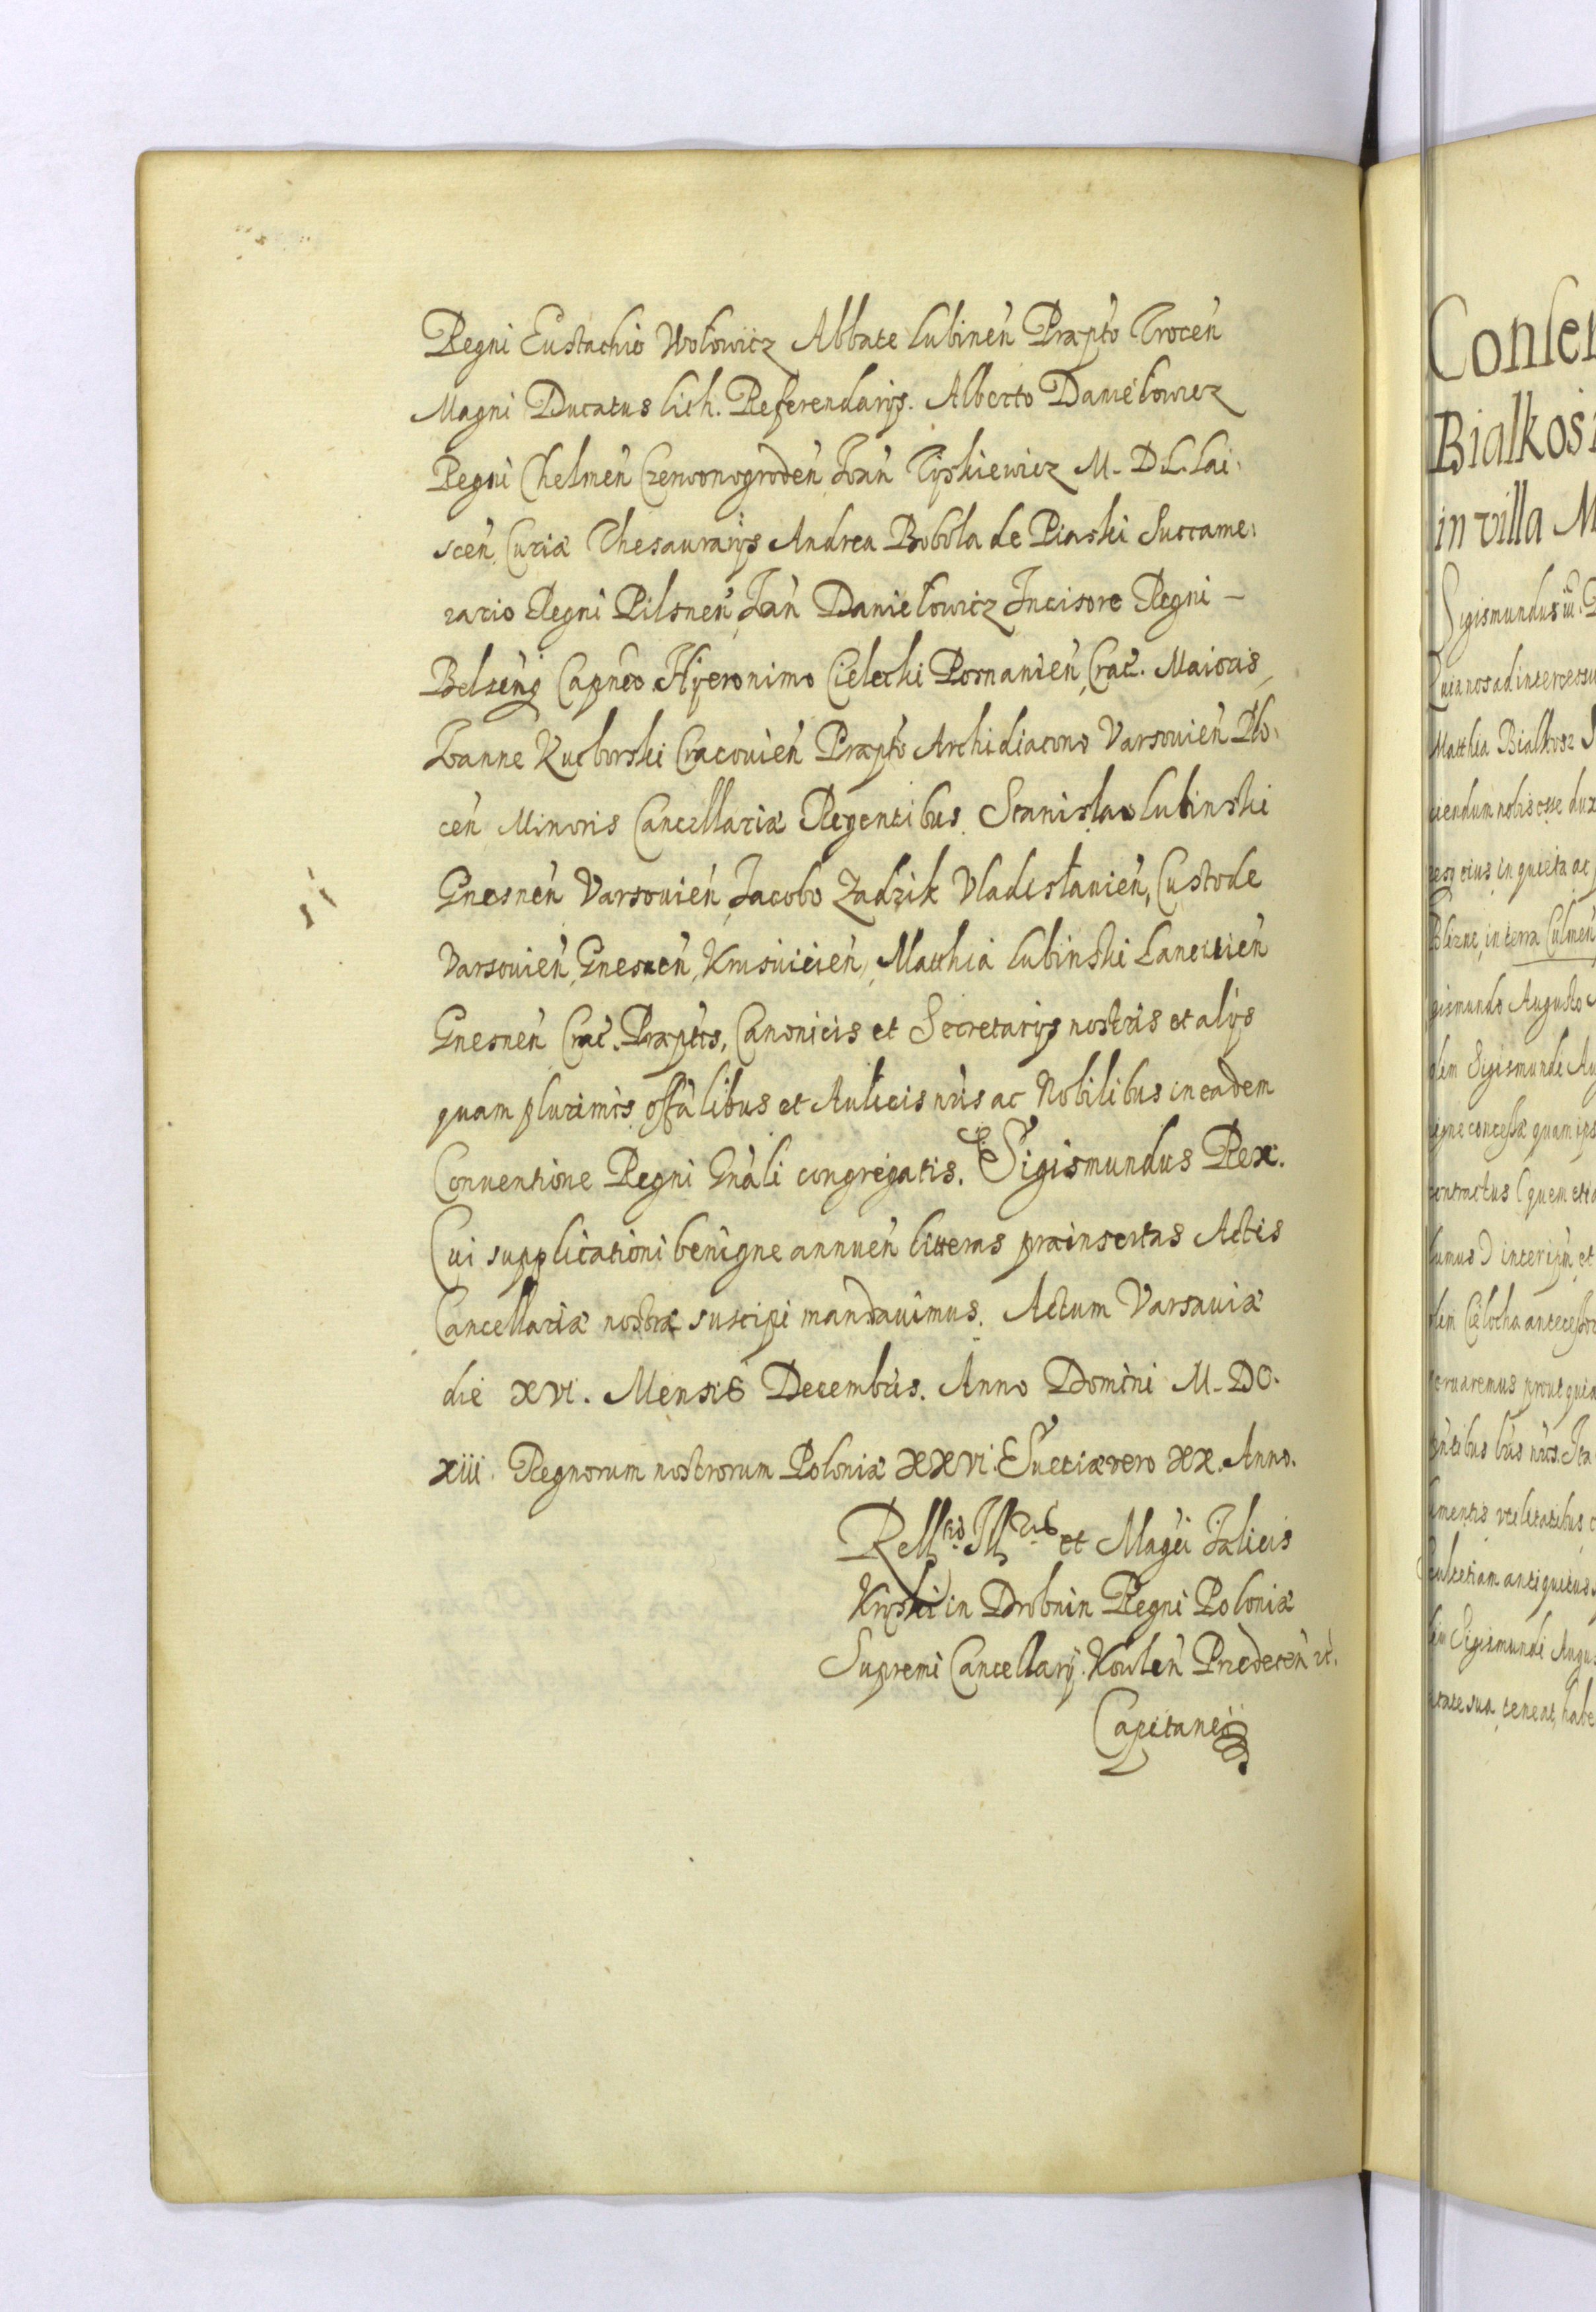 Regni Eustachio Wołowicz Abbate Lubineń Præpto Troceń
Magni Ducatus Lith. Referendarijs. Alberto Daniełowicz
Regni Chelmeń Czerwonogrodeń Joań Tijskiewicz M. D. L. Lai:
sceń Curiæ Thesaurarijs Andrea Bobola de Piaski Succame:
rario Regni Pilsneń Joań Daniełowicz Incisore Regni –
Belzeńq Capneo Hijeronimo Cielecki Posnanień, Crac. Maioris,
Joanne Kucborski Cracouień Præpto Archidiacono Varsouień Plo:
ceń Minoris Cancellariæ Regentibus Stanislao Lubinski
Gnesneń Varsouień Jacobo Zadzik Vladislauień, Custode
Varsouień, Gnesneń, Krusuicień, Matthia Lubinski Lancicień
Gnesneń Crac. Præptis, Canonicis et Secretarijs nostris et alijs
quam plurimis offalibus et Aulicis nris ac Nobilibus in eadem
Conuentione Regni Gnali congregatis. Sigismundus Rex.
Cui supplicationi benigne annueń litteras præinsertas Actis
Cancellariæ nostræ suscipi mandauimus. Actum Varsauiæ
die XVI. Mensis Decembris. Anno Domini M. DC.
XIII. Regnorum nostrorum Poloniæ XXVI. Suetiæ vero XX. Anno.
Rell Ill et Magci Felicis
Krijski in Drobnin Regni Poloniæ
Supremi Cancellarij. Kowleń Przedeceń etc.
Capitanei
Consen
Bialkos
in villa M
Sigismundus
Quia nos ad intercessi
Matthia Bialkosz
ciendum nobis esse dux
eius in quieta ac
Blizne, in terra Culmeń
gismundo Augusto
Sigismundi Au
igne concessæ quam ips
contractus (quem etia
sumus) interim et
antecessor
eruaremus prout quia
nris. Ita
mentis vtilitatibus
cultetiam antiquitus
Sigismundi Augus
tate sua teneat, habe